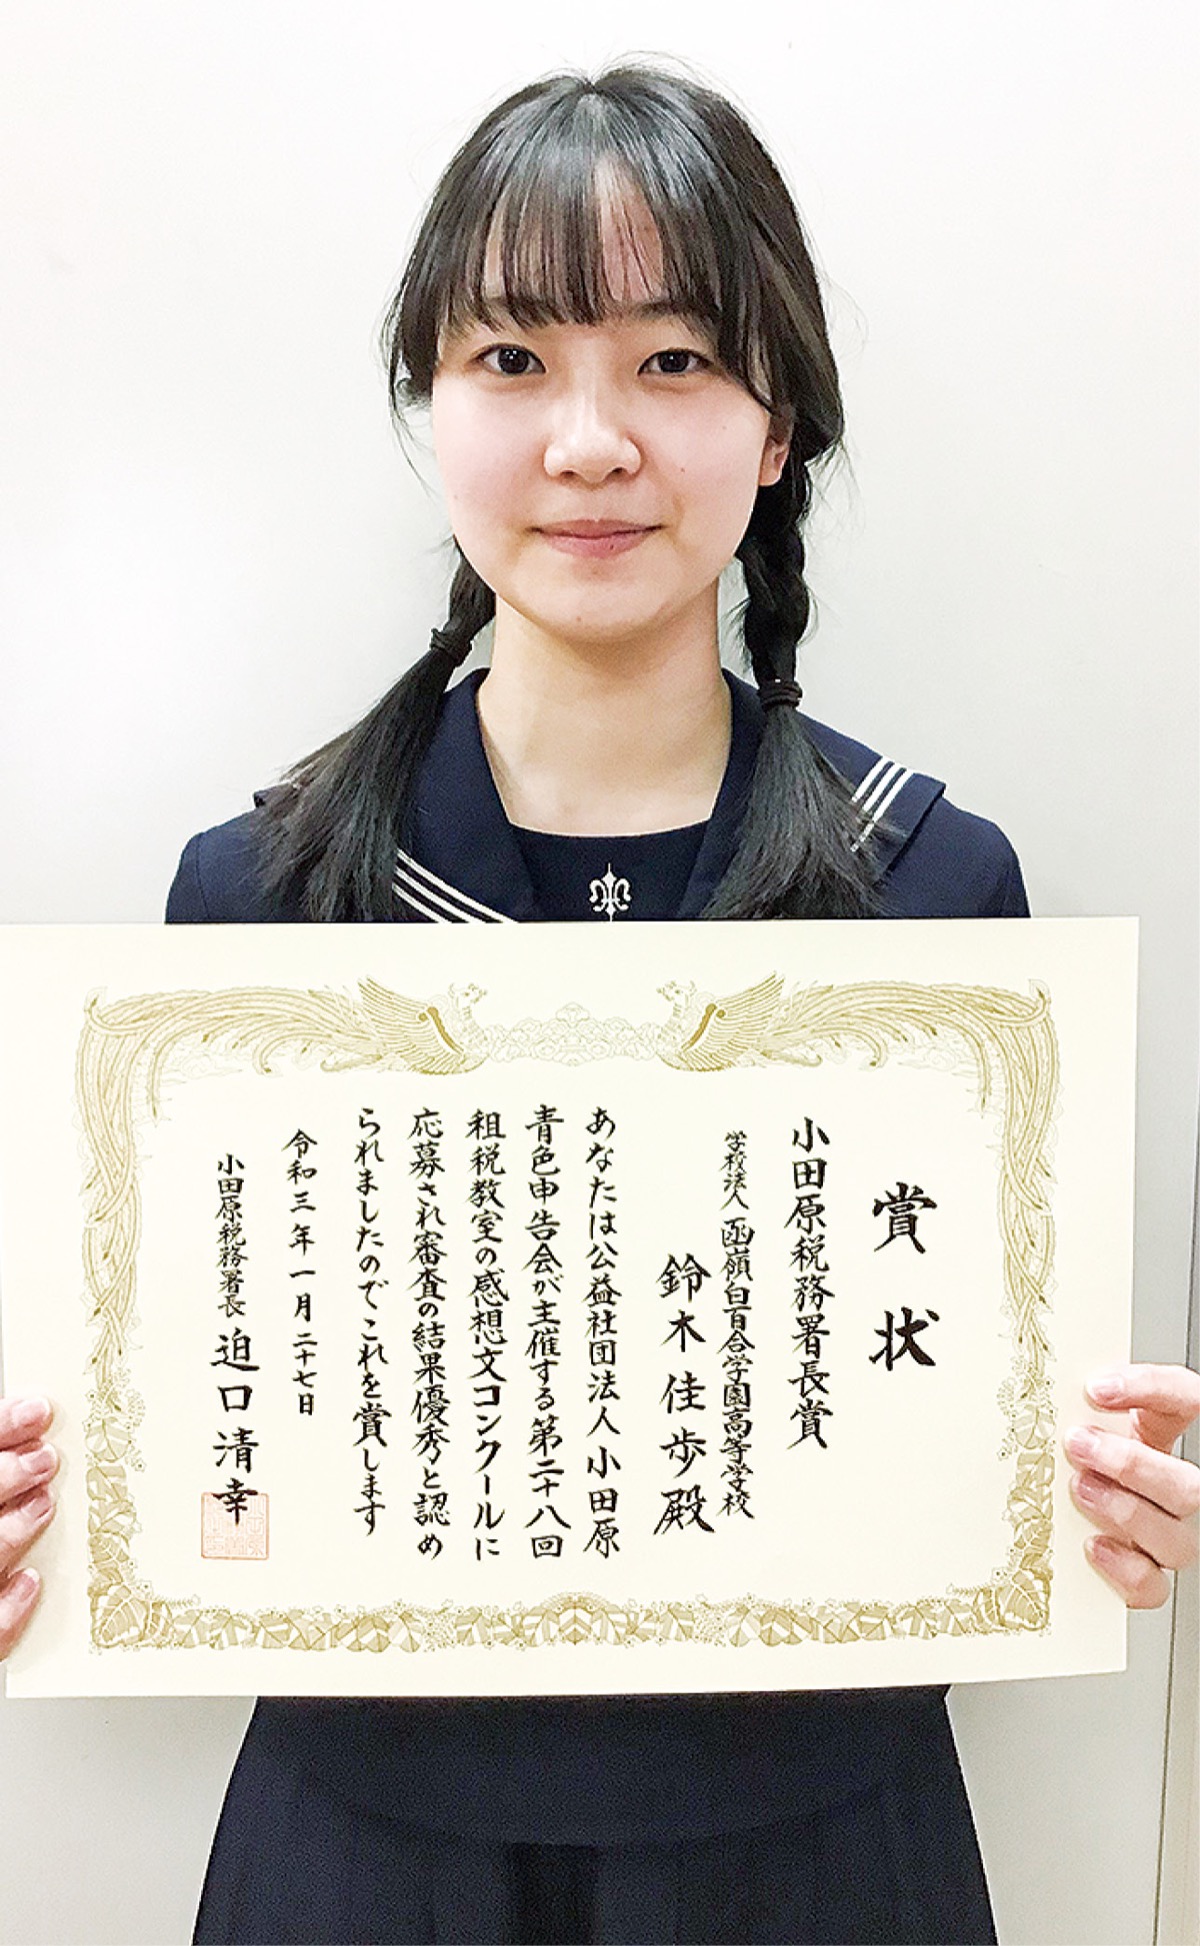 賞状
小田原税務署長賞
学校法人 函嶺白百合学園高等学校
鈴木佳歩殿
あなたは公益社団法人小田原
青色申告会が主催する第二十八回
租税教室の感想文コンクールに
応募され審査の結果優秀と認め
られましたのでこれを賞します
令和三年一月二十七日
小田原税務署長 迫口清幸